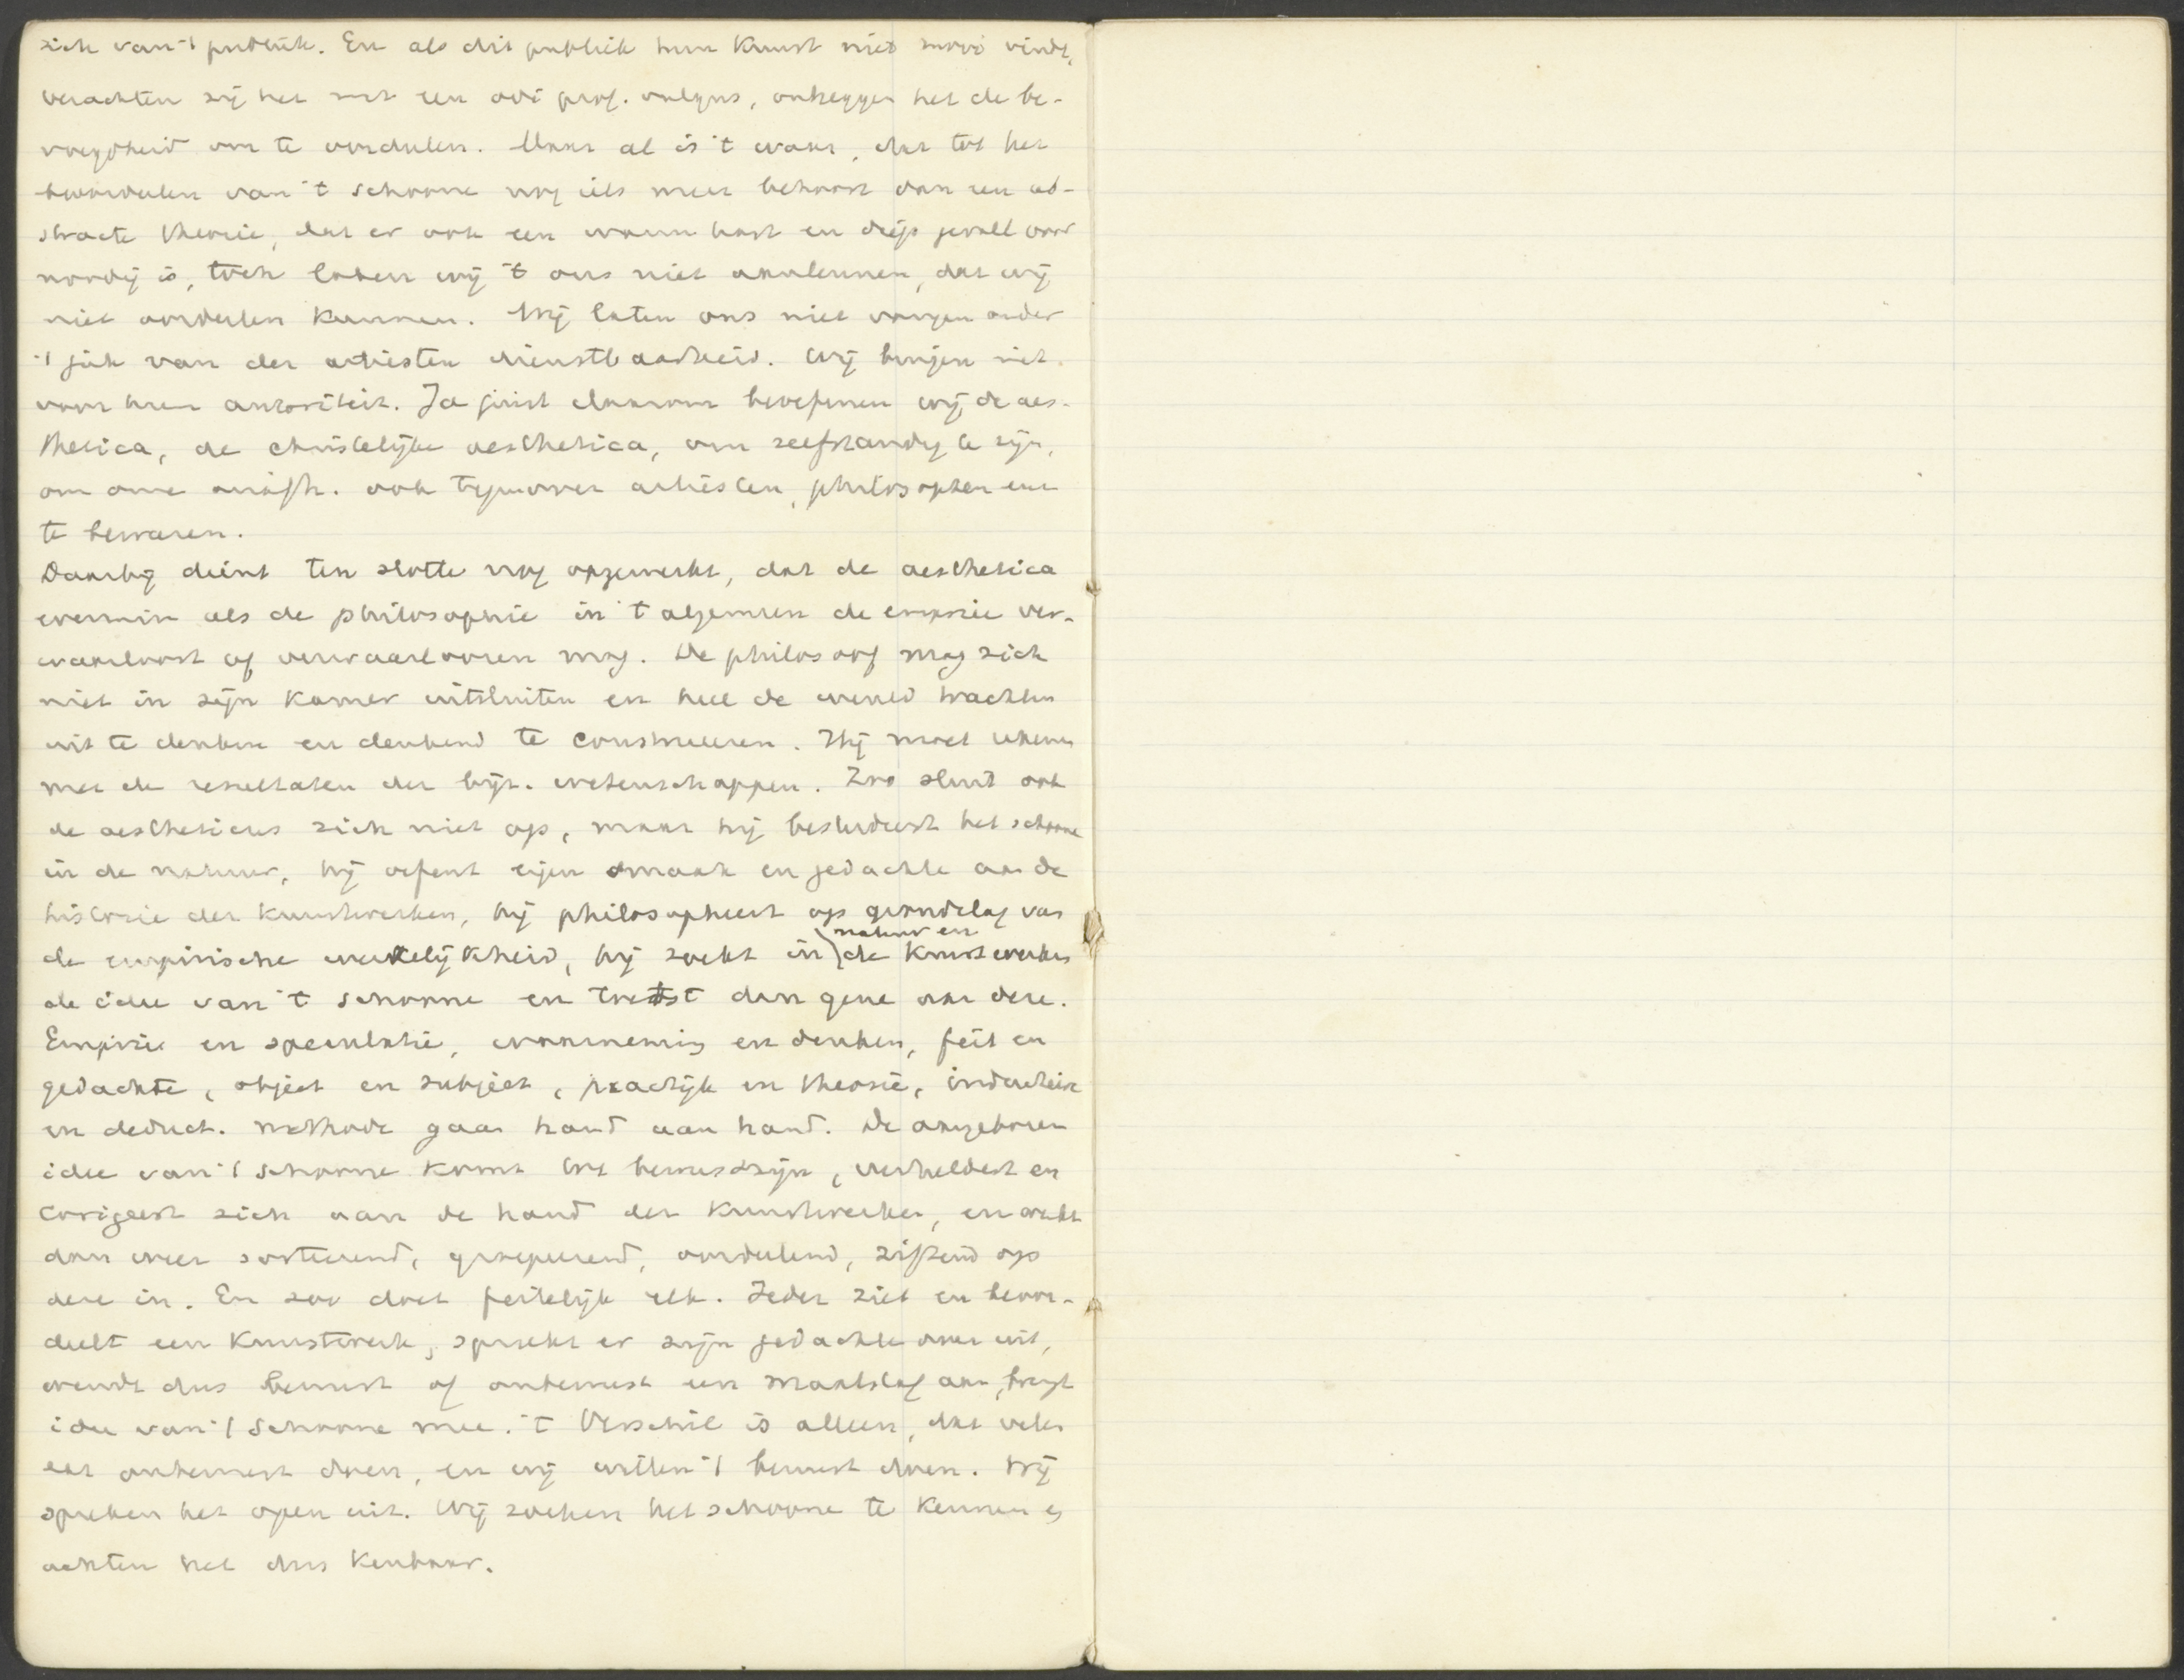 zich van 't publiek. En als dit publiek hun kunst niet mooi vindt,
verachten zij het met een odi prof. vulgus, ontzeggen het de be-
voegdheid om te oordeelen. Maar al is 't waar, dat tot het
beoordeelen van 't schoone nog iets meer behoort dan een ab-
stracte theorie, dat er ook een warm hart en diep gevoel voor
noodig is, toch laten wij 't ons niet aanleunen, dat wij
niet oordeelen kunnen. Wij laten ons niet vangen onder
't juk van der artiesten dienstbaarheid. Wij buigen niet
voor hun autoriteit. Ja juist daarom beoefenen wij de aes-
thetica, de christelijke aesthetica, om zelfstandig te zijn,
om onze onafh. ook tegenover artiesten, philosophen enz
te bewaren.
Daarbij dient ten slotte nog opgemerkt, dat de aesthetica
evenmin als de philosophie in 't algemeen de empirie ver-
waarloost of verwaarloozen mag. De philosoof mag zich
niet in zijn kamer uitsluiten en heel de wereld trachten
uit te denken en denkend te construeeren. Hij moet rekenen
met de resultaten der bijz. wetenschappen. Zoo sluit ook
de aestheticus zich niet op, maar hij bestudeert het schoone
in de natuur, hij oefent eigen smaak en gedachte aan de
historie der kunstwerken, hij philosopheert op grondslag van
de empirische werkelijkheid, hij zoekt in natuur en de kunstwerken
de idee van 't schoone en toetst dan gene aan deze.
Empirie en speculatie, waarneming en denken, feit en
gedachte, object en subject, practijk en theorie, inductieve
en deduct. methode gaan hand aan hand. De aangeboren
idee van 't schoone komt tot bewustzijn, verheldert en
corrigeert zich aan de hand der kunstwerken, en werkt
dan weer sorteerend, groepeerend, oordeelend, ziftend op
deze in. En zoo doet feitelijk elk. Ieder ziet en beoor-
deelt een kunstwerk, spreekt er zijn gedachte over uit,
wendt dus bewust of onbewust een maatstaf aan, brengt
idee van 't schoone mee. 't Verschil is alleen, dat velen
dat onbewust doen, en wij willen 't bewust doen. Wij
spreken het open uit. Wij zoeken het schoone te kennen en
achten het dus kenbaar.